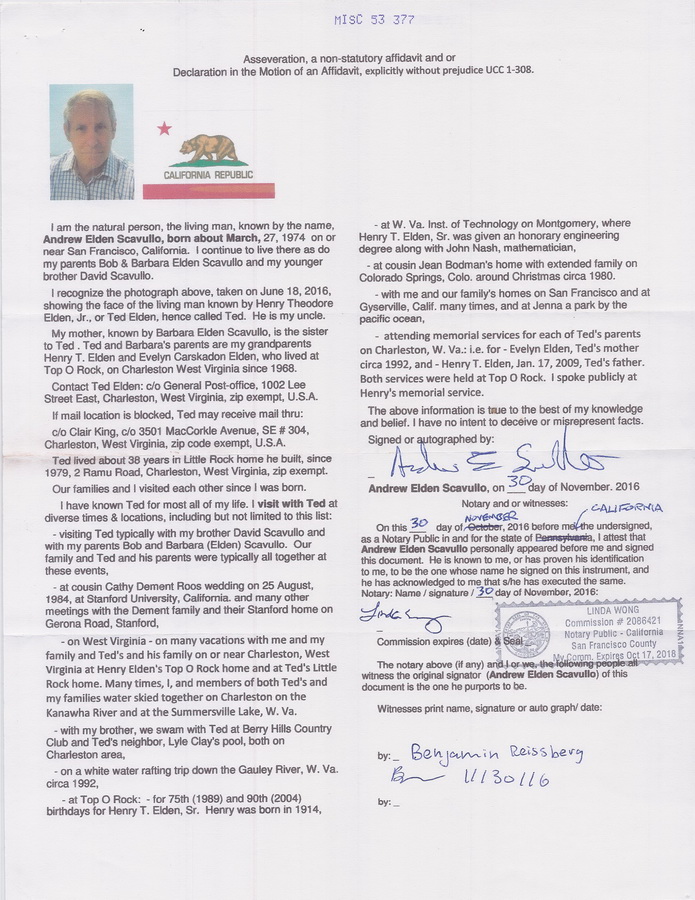 MISC 53 377
Asseveration, a non-statutory affidavit and or
Declaration in the Motion of an Affidavit, explicitly without prejudice UCC 1-308.
CALIFORNIA REPUBLIC
I am the natural person, the living man, known by the name,
Andrew Elden Scavullo, born about March, 27, 1974 on or
near San Francisco, California. I continue to live there as do
my parents Bob & Barbara Elden Scavullo and my younger
brother David Scavullo.
I recognize the photograph above, taken on June 18, 2016,
showing the face of the living man known by Henry Theodore
Elden, Jr., or Ted Elden, hence called Ted. He is my uncle.
My mother, known by Barbara Elden Scavullo, is the sister
to Ted . Ted and Barbara's parents are my grandparents
Henry T. Elden and Evelyn Carskadon Elden, who lived at
Top O Rock, on Charleston West Virginia since 1968.
Contact Ted Elden: c/o General Post-office, 1002 Lee
Street East, Charleston, West Virginia, zip exempt, U.S.A.
If mail location is blocked, Ted may receive mail thru:
c/o Clair King, c/o 3501 MacCorkle Avenue, SE # 304,
Charleston, West Virginia, zip code exempt, U.S.A.
Ted lived about 38 years in Little Rock home he built, since
1979, 2 Ramu Road, Charleston, West Virginia, zip exempt.
Our families and I visited each other since I was born.
I have known Ted for most all of my life. I visit with Ted at
diverse times & locations, including but not limited to this list:
- visiting Ted typically with my brother David Scavullo and
with my parents Bob and Barbara (Elden) Scavullo. Our
family and Ted and his parents were typically all together at
these events,
- at cousin Cathy Dement Roos wedding on 25 August,
1984, at Stanford University, California. and many other
meetings with the Dement family and their Stanford home on
Gerona Road, Stanford,
- on West Virginia - on many vacations with me and my
family and Ted's and his family on or near Charleston, West
Virginia at Henry Elden's Top O Rock home and at Ted's Little
Rock home. Many times, I, and members of both Ted's and
my families water skied together on Charleston on the
Kanawha River and at the Summersville Lake, W. Va.
- with my brother, we swam with Ted at Berry Hills Country
Club and Ted's neighbor, Lyle Clay's pool, both on
Charleston area,
- on a white water rafting trip down the Gauley River, W. Va.
circa 1992,
- at Top O Rock: - for 75th (1989) and 90th (2004)
birthdays for Henry T. Elden, Sr. Henry was born in 1914,
- at W. Va. Inst. of Technology on Montgomery, where
Henry T. Elden, Sr. was given an honorary engineering
degree along with John Nash, mathematician,
- at cousin Jean Bodman's home with extended family on
Colorado Springs, Colo. around Christmas circa 1980.
- with me and our family's homes on San Francisco and at
Gyserville, Calif. many times, and at Jenna a park by the
pacific ocean,
- attending memorial services for each of Ted's parents
on Charleston, W. Va.: i.e. for - Evelyn Elden, Ted's mother
circa 1992, and - Henry T. Elden, Jan. 17, 2009, Ted's father.
Both services were held at Top O Rock. I spoke publicly at
Henry's memorial service.
The above information is true to the best of my knowledge
and belief. I have no intent to deceive or misrepresent facts.
Signed or autographed by:
Andrew E Scavullo
Andrew Elden Scavullo, on 30 day of November. 2016
Notary and or witnesses:
NOVEMBER CALIFORNIA
On this 30 day of October, 2016 before me, the undersigned,
as a Notary Public in and for the state of Pennsylvania, I attest that
Andrew Elden Scavullo personally appeared before me and signed
this document. He is known to me, or has proven his identification
to me, to be the one whose name he signed on this instrument, and
he has acknowledged to me that s/he has executed the same.
Notary: Name / signature / 30 day of November, 2016:
LINDA WONG
Commission # 2086421
Notary Public - California
San Francisco County
My Comm. Expires Oct 17, 2018
Commission expires (date) & Seal
The notary above (if any) and I or we, the following people all
witness the original signator (Andrew Elden Scavullo) of this
document is the one he purports to be.
Witnesses print name, signature or auto graph/ date:
by:_ Benjamin Reissberg
11/30/16
by: _